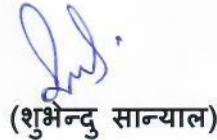 (शुभेन्दु सान्याल)